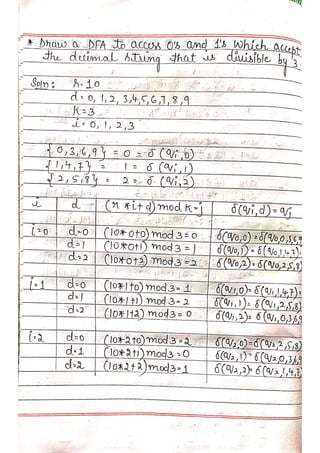 * Draw a DFA to access 0's and 1's which accept
the decimal string that is divisible by 3
Soln: r=10
d=0, 1, 2, 3,4,5,6,7,8,9
K=3
i=0, 1, 2, 3
{0,3,6,9} = 0 = δ (qi,0)
{1,4,7} = 1 = δ (qi,1)
{2,5,8} = 2 = δ (qi,2)
i d (r*i+d) mod k=j δ(qi,d)=qj
i=0 d=0 (10*0+0) mod 3=0 δ(q0,0)=δ(q0,0,3,6,9
d=1 (10*0+1) mod 3=1 δ(q0,1)=δ(q0,1,4,7)=
d=2 (10*0+2) mod 3=2 δ(q0,2)=δ(q0,2,5,8)
i=1 d=0 (10*1+0) mod 3=1 δ(q1,0)=δ(q1,1,4,7)=
d=1 (10*1+1) mod 3=2 δ(q1,1)=δ(q1,2,5,8)
d=2 (10*1+2) mod 3=0 δ(q1,2)=δ(q1,0,3,6,9
i=2 d=0 (10*2+0) mod 3=2 δ(q2,0)=δ(q2,2,5,8)
d=1 (10*2+1) mod 3=0 δ(q2,1)=δ(q2,0,3,6,9
d=2 (10*2+2) mod 3=1 δ(q2,2)=δ(q2,1,4,7